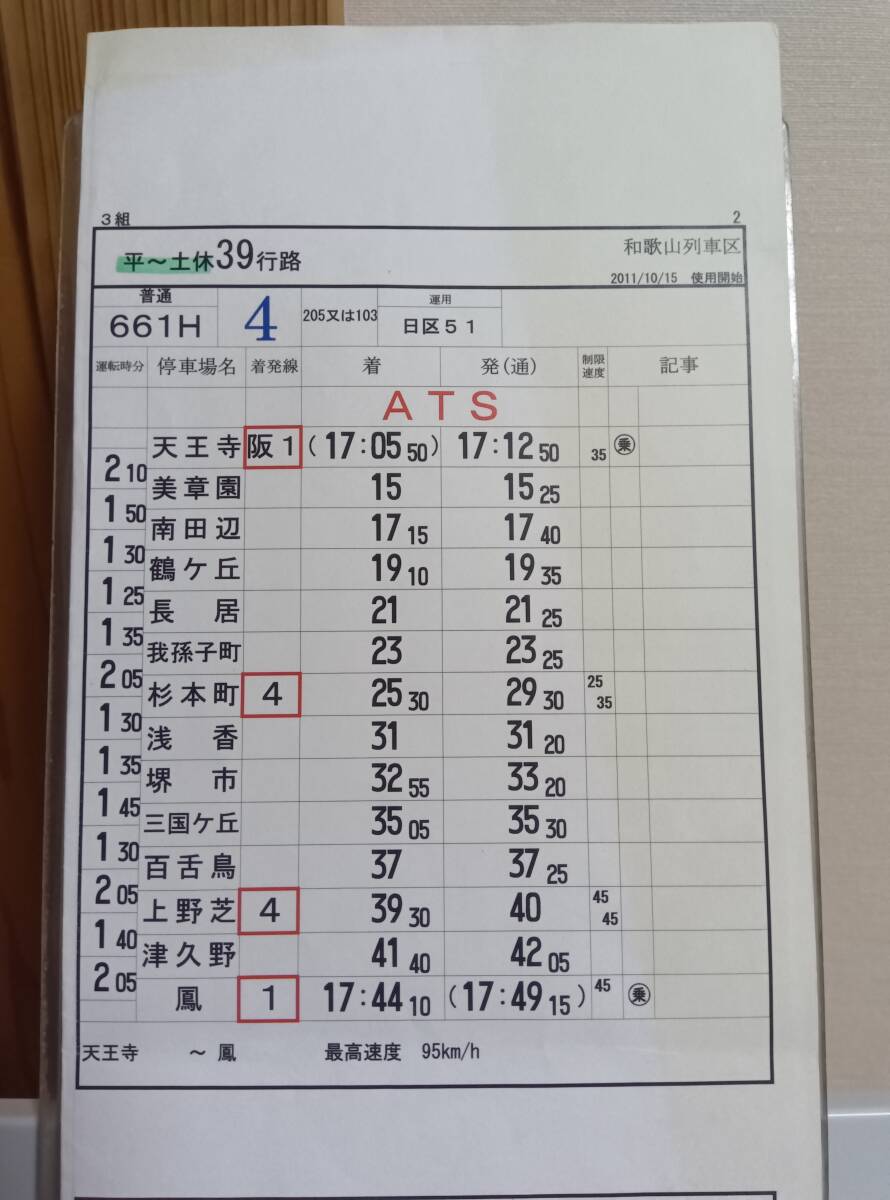 3組 2
平～土休39行路 和歌山列車区
2011/10/15 使用開始
普通 運用
661H 4 205又は103 日区51
運転時分 停車場名 着発線 着 発(通) 制限速度 記事
ATS
天王寺 阪1 (17:05 50) 17:12 50 35 乗
2 10
美章園 15 15 25
1 50
南田辺 17 15 17 40
1 30
鶴ケ丘 19 10 19 35
1 25
長居 21 21 25
1 35
我孫子町 23 23 25
2 05
杉本町 4 25 30 29 30 25 35
1 30
浅香 31 31 20
1 35
堺市 32 55 33 20
1 45
三国ケ丘 35 05 35 30
1 30
百舌鳥 37 37 25
2 05
上野芝 4 39 30 40 45 45
1 40
津久野 41 40 42 05
2 05
鳳 1 17:44 10 (17:49 15) 45 乗
天王寺 ～ 鳳 最高速度 95km/h